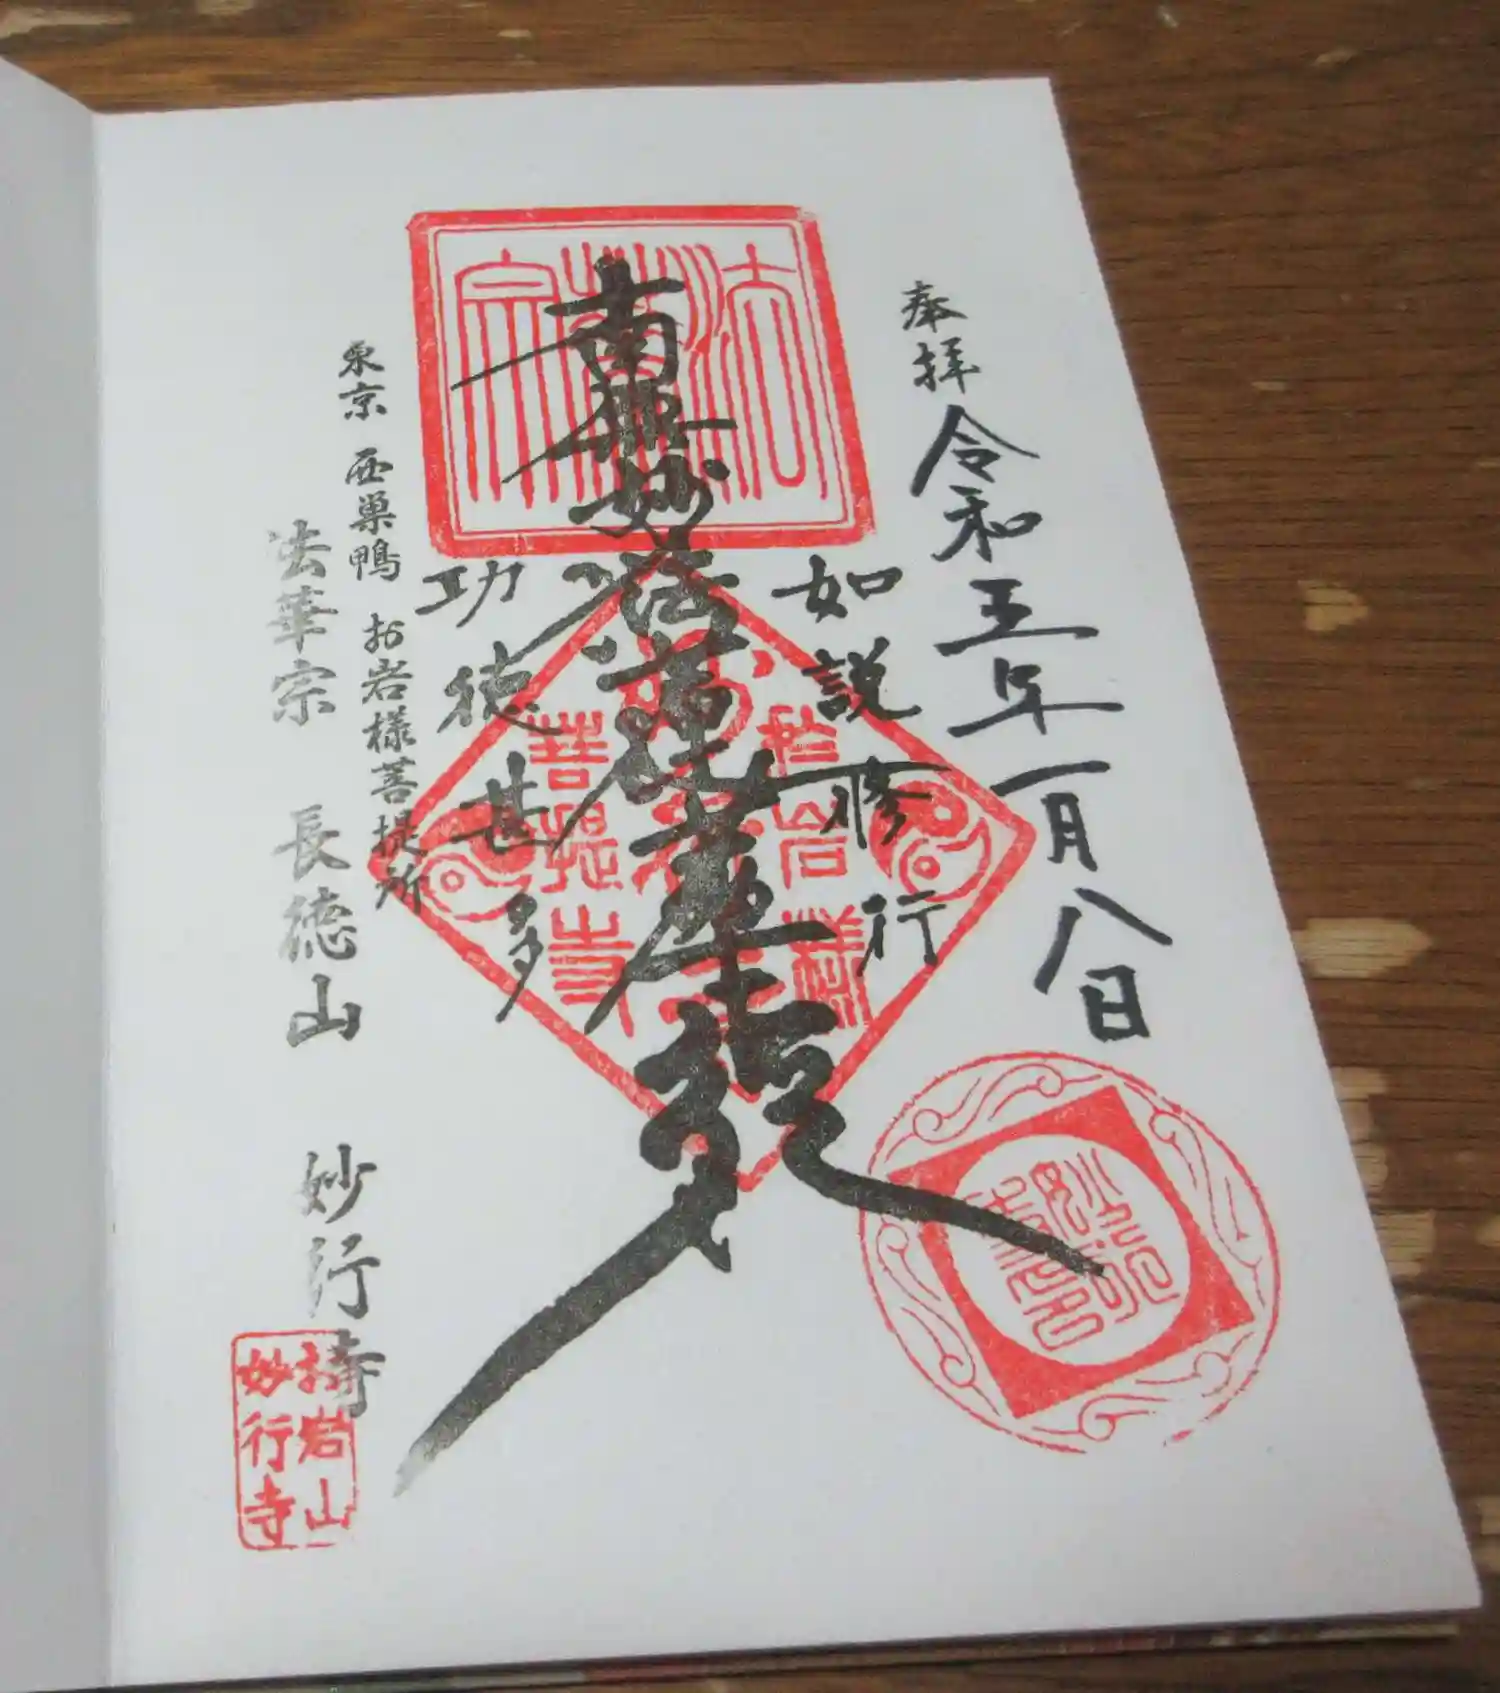 奉拝 令和五年一月八日
如説修行
南無妙法蓮華経
功徳甚多
東京 西巣鴨 お岩様菩提所
法華宗 長徳山 妙行寺
法華宗
於岩様
菩提寺
お岩山
妙行寺